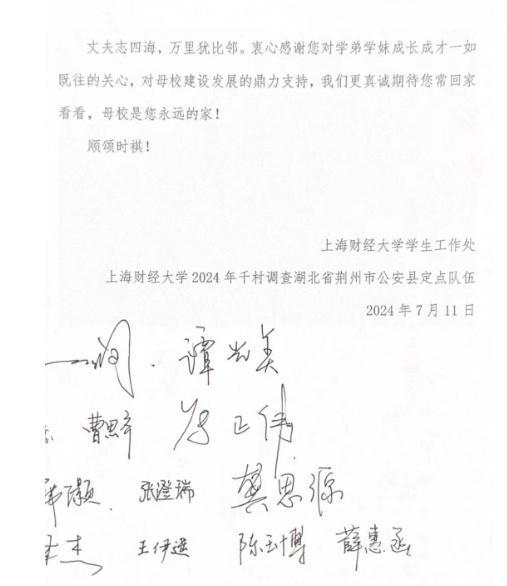 丈夫志四海，万里犹比邻。衷心感谢您对学弟学妹成长成才一如
既往的关心，对母校建设发展的鼎力支持，我们更真诚期待您常回家
看看，母校是您永远的家！
顺颂时祺！
上海财经大学学生工作处
上海财经大学 2024 年千村调查湖北省荆州市公安县定点队伍
2024 年 7 月 11 日
谭
曹思齐 正伟
张澄瑞 龚思源
杰 王伊 陈 博 薛惠函